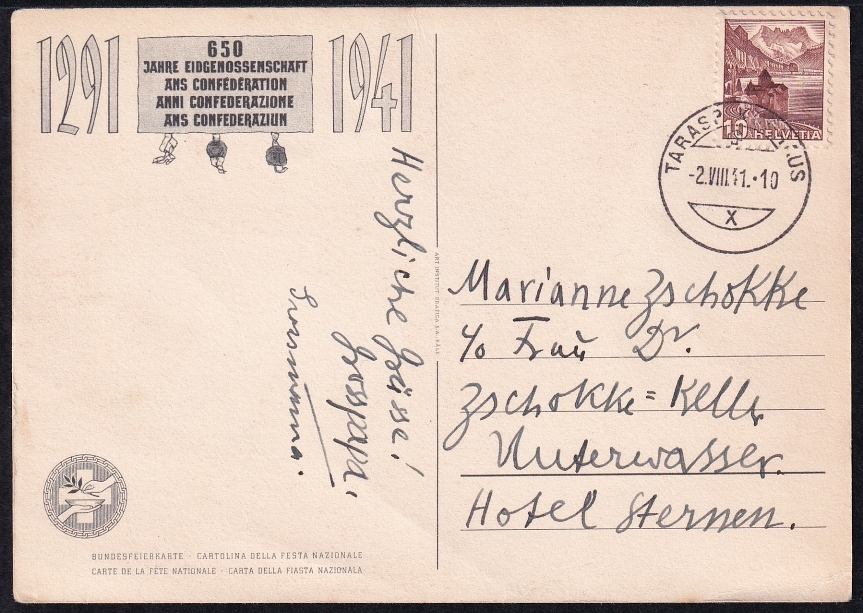 1291
650
JAHRE EIDGENOSSENSCHAFT
ANS CONFÉDÉRATION
ANNI CONFEDERAZIONE
ANS CONFEDERAZIUN
1941
10 HELVETIA
TARASP
-2.VIII.41.·10
X
Herzliche Grüsse!
Grosspapa,
Marianne Zschokke
c/o Frau Dr.
Zschokke=Keller
Unterwasser.
Hotel Sternen.
BUNDESFEIERKARTE · CARTOLINA DELLA FESTA NAZIONALE
CARTE DE LA FÊTE NATIONALE · CARTA DELLA FIASTA NAZIONALA